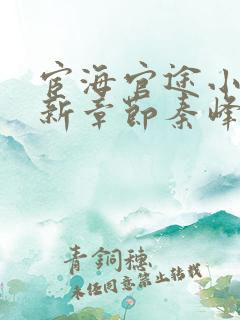 宦海官途小
新章节秦峰
青铜穗
未经同意禁止转载